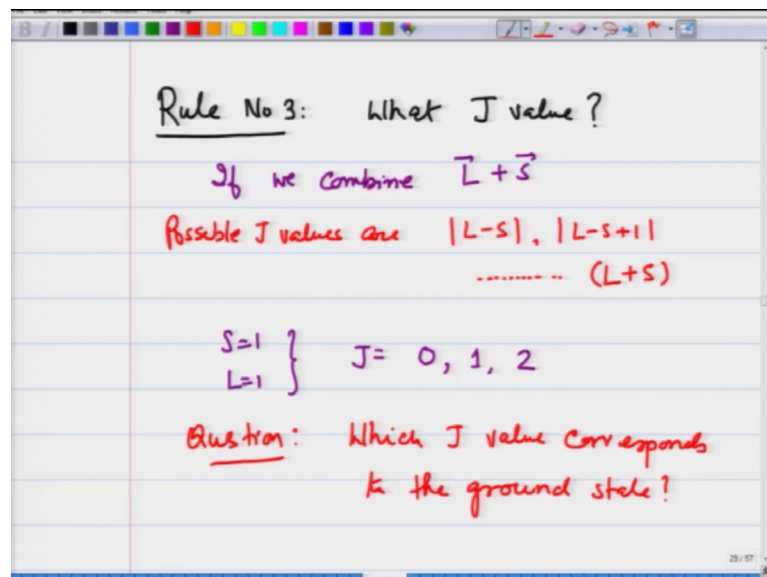 Rule No 3: What J value?
If we combine L⃗ + S⃗
Possible J values are |L-S|, |L-S+1|
........... (L+S)
S=1
L=1 } J= 0, 1, 2
Qustion: Which J value corresponds
to the ground state?
29/57